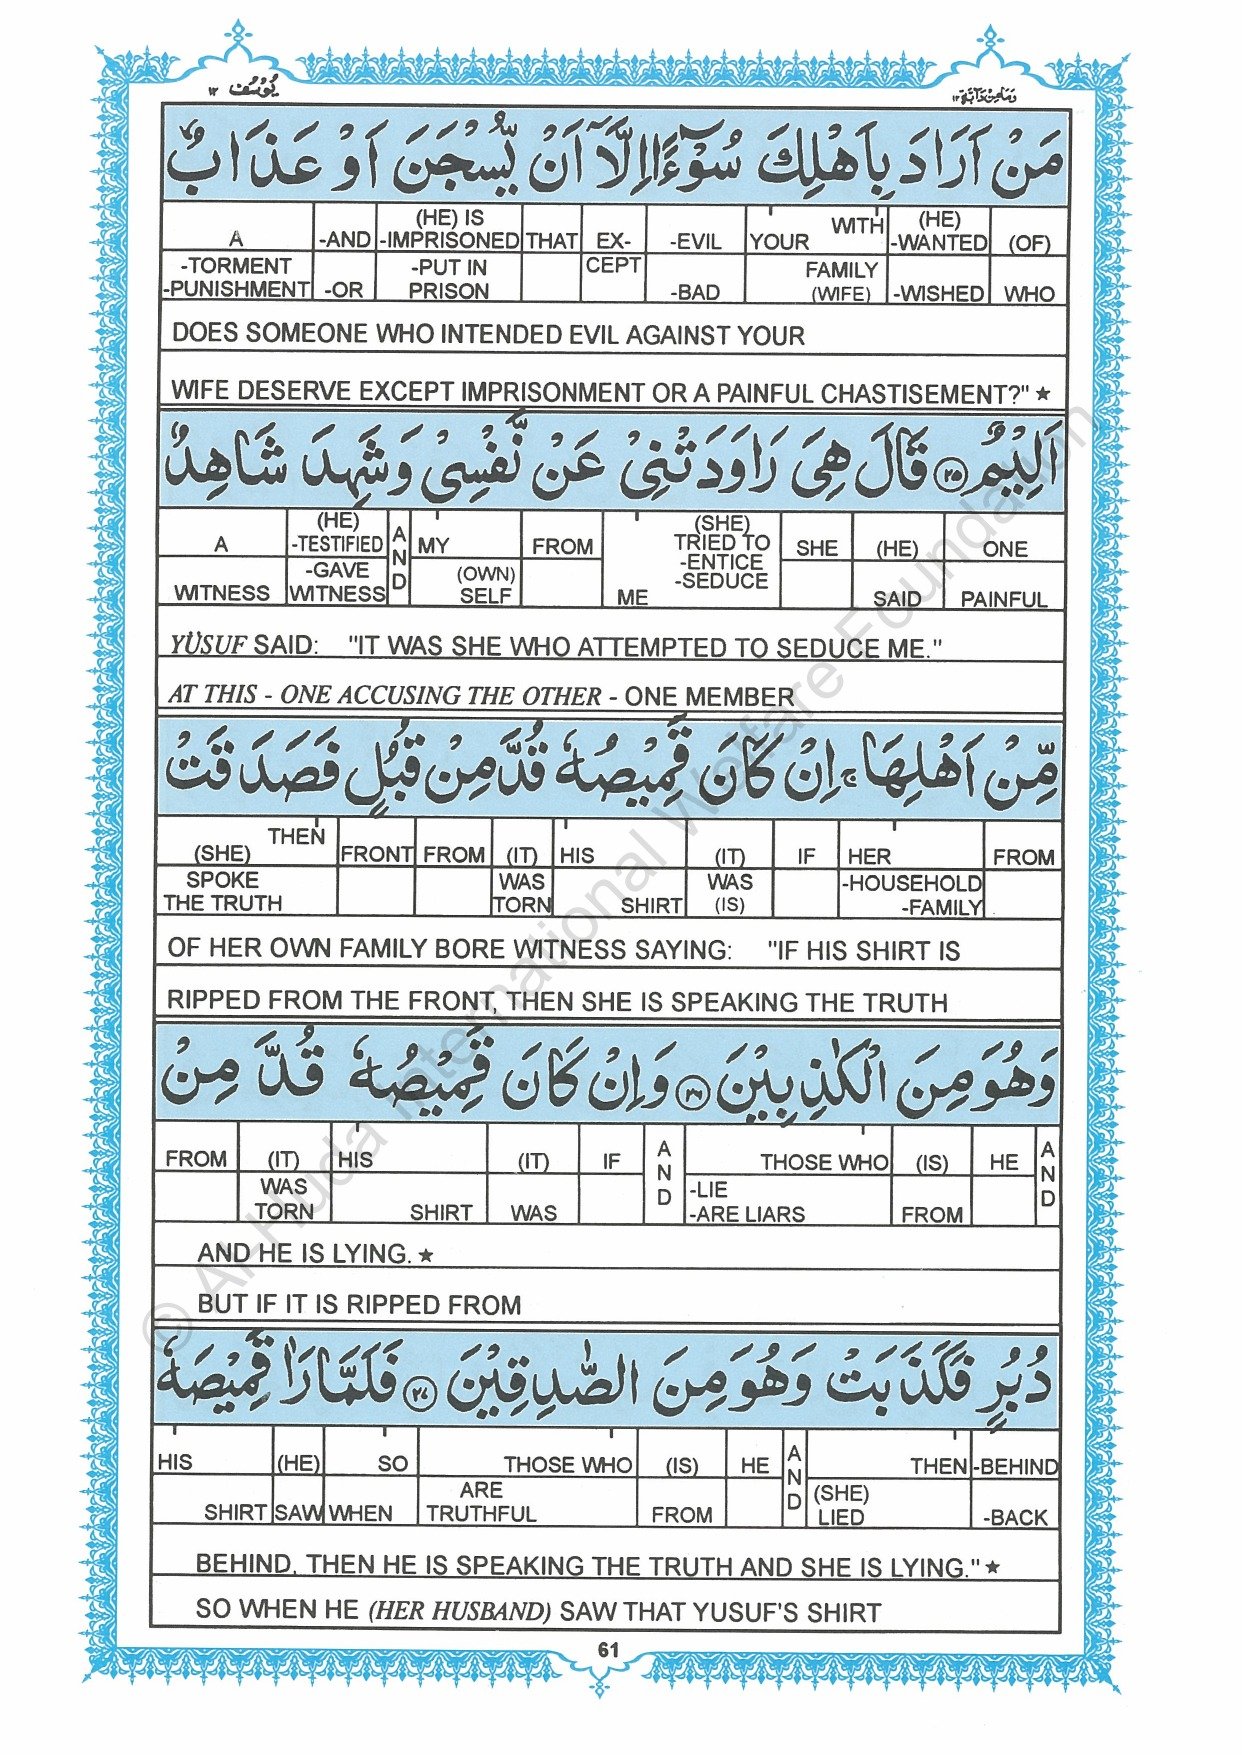 يُوْسُف ١٢
وَمَا مِنْ دَآبَّة ١٢
مَنْ اَرَادَ بِاَهْلِكَ سُوْٓءًا اِلَّاۤ اَنْ يُّسْجَنَ اَوْ عَذَابٌ
A -AND (HE) IS -IMPRISONED THAT EX- -EVIL YOUR WITH (HE) -WANTED (OF)
-TORMENT -PUNISHMENT -OR -PUT IN PRISON CEPT -BAD FAMILY (WIFE) -WISHED WHO
DOES SOMEONE WHO INTENDED EVIL AGAINST YOUR
WIFE DESERVE EXCEPT IMPRISONMENT OR A PAINFUL CHASTISEMENT?" ★
اَلِيْمٌ ٢٥ قَالَ هِيَ رَاوَدَتْنِيْ عَنْ نَّفْسِيْ وَشَهِدَ شَاهِدٌ
A (HE) -TESTIFIED AND MY FROM (SHE) TRIED TO -ENTICE -SEDUCE SHE (HE) ONE
WITNESS -GAVE WITNESS (OWN) SELF ME SAID PAINFUL
YÜSUF SAID: "IT WAS SHE WHO ATTEMPTED TO SEDUCE ME."
AT THIS - ONE ACCUSING THE OTHER - ONE MEMBER
مِّنْ اَهْلِهَا ۚ اِنْ كَانَ قَمِيْصُهٗ قُدَّ مِنْ قُبُلٍ فَصَدَقَتْ
(SHE) THEN FRONT FROM (IT) HIS (IT) IF HER FROM
SPOKE THE TRUTH WAS TORN SHIRT WAS (IS) -HOUSEHOLD -FAMILY
OF HER OWN FAMILY BORE WITNESS SAYING: "IF HIS SHIRT IS
RIPPED FROM THE FRONT, THEN SHE IS SPEAKING THE TRUTH
وَهُوَ مِنَ الْكٰذِبِيْنَ ٢٦ وَاِنْ كَانَ قَمِيْصُهٗ قُدَّ مِنْ
FROM (IT) HIS (IT) IF AND THOSE WHO (IS) HE AND
WAS TORN SHIRT WAS -LIE -ARE LIARS FROM
AND HE IS LYING. ★
BUT IF IT IS RIPPED FROM
دُبُرٍ فَكَذَبَتْ وَهُوَ مِنَ الصّٰدِقِيْنَ ٢٧ فَلَمَّا رَاٰ قَمِيْصَهٗ
HIS (HE) SO THOSE WHO (IS) HE AND THEN -BEHIND
SHIRT SAW WHEN ARE TRUTHFUL FROM (SHE) LIED -BACK
BEHIND, THEN HE IS SPEAKING THE TRUTH AND SHE IS LYING." ★
SO WHEN HE (HER HUSBAND) SAW THAT YUSUF'S SHIRT
61
© Al-Huda International Welfare Foundation